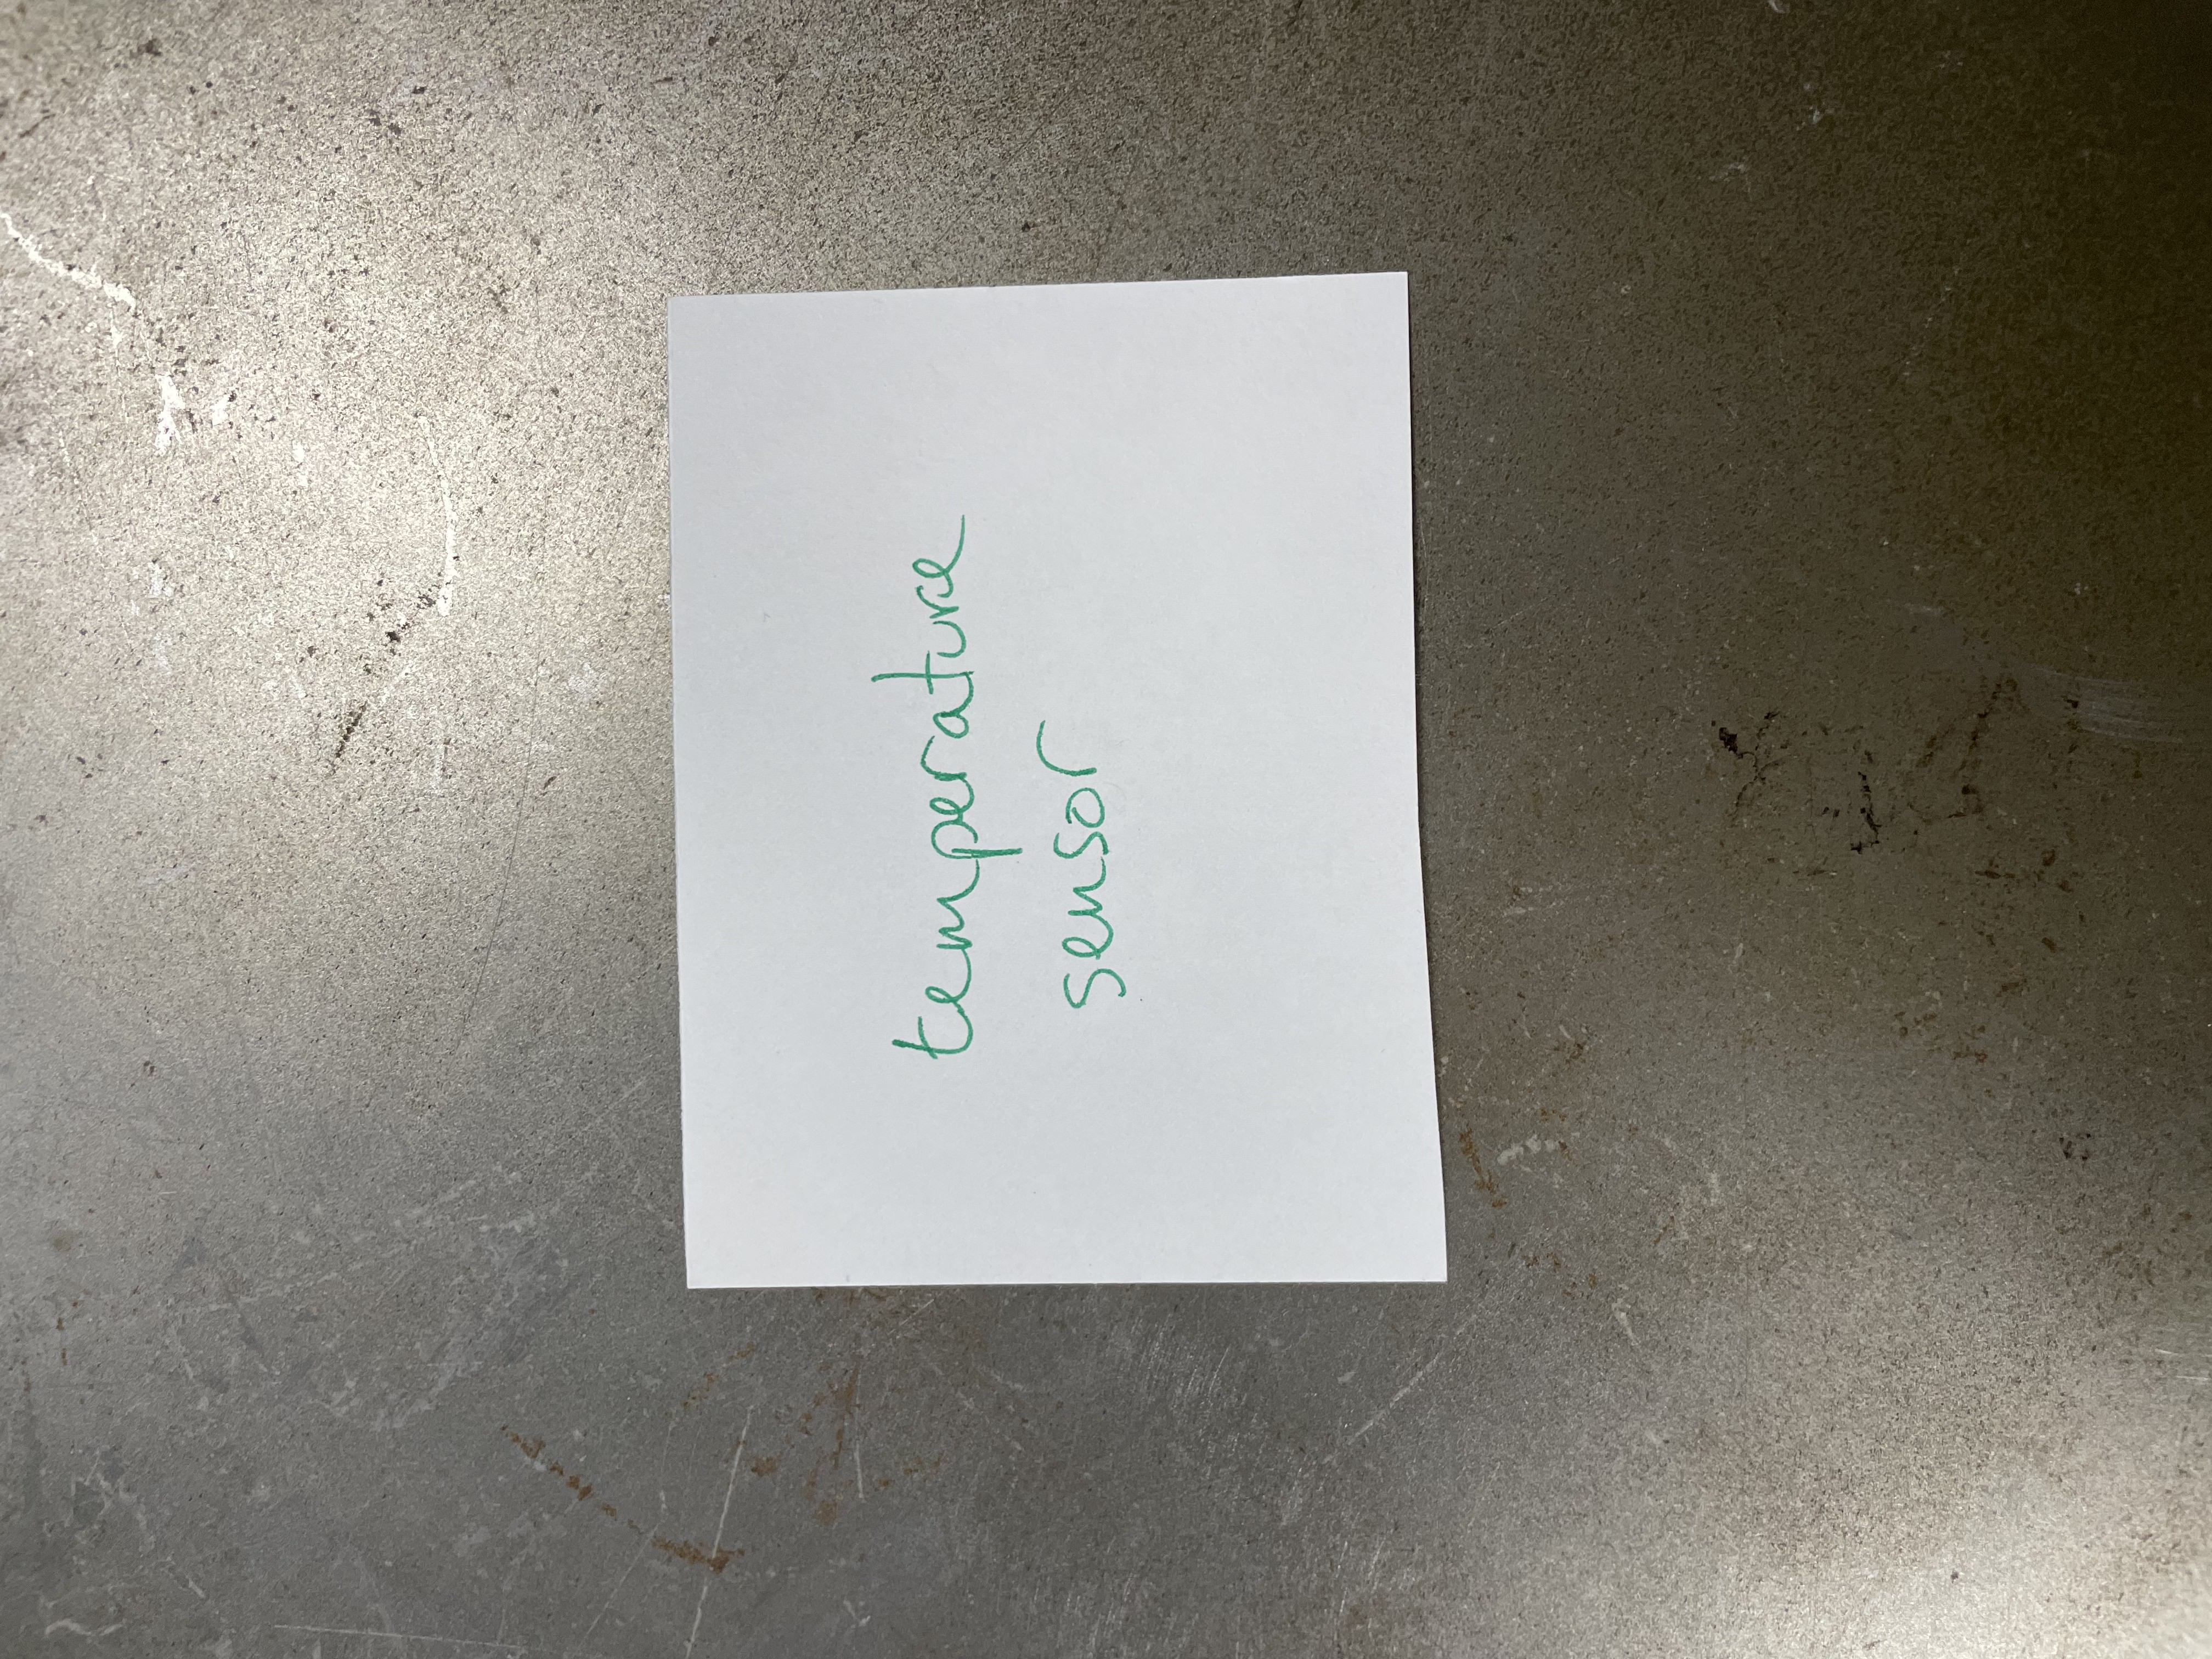 temperature
sensor